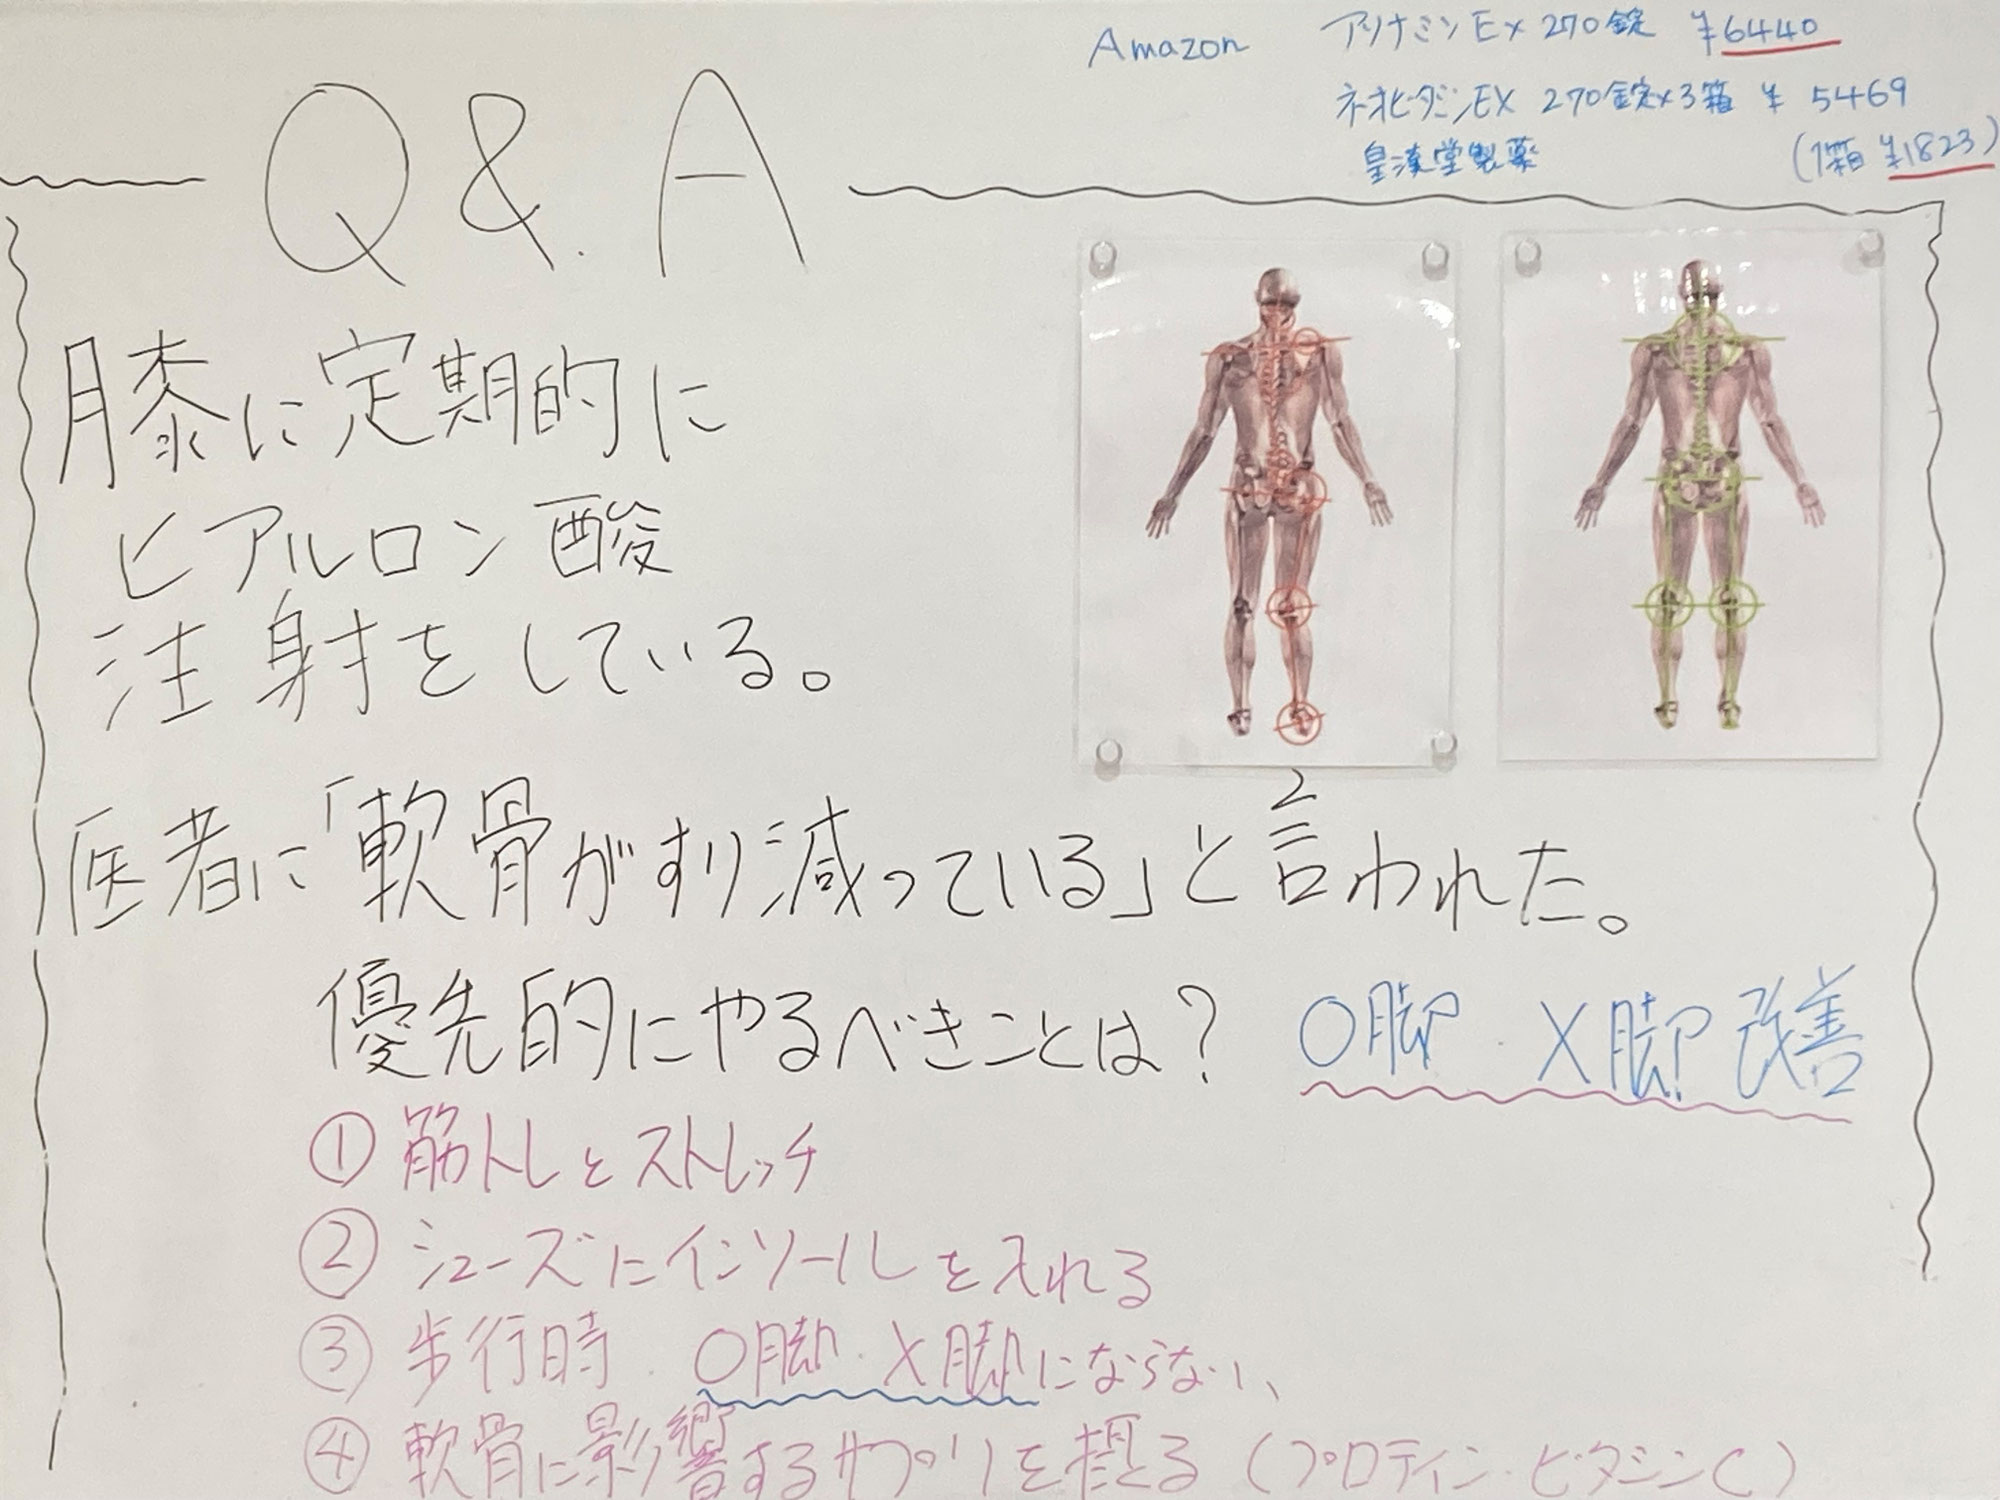 Amazon アリナミンEX 270錠 ¥6440
ネオビタミンEX 270錠×3箱 ¥5469
皇漢堂製薬 (1箱 ¥1823)
Q&A
膝に定期的に
ヒアルロン酸
注射をしている。
医者に「軟骨がすり減っている」と言われた。
優先的にやるべきことは? O脚・X脚改善
①筋トレとストレッチ
②シューズにインソールを入れる
③歩行時・O脚・X脚にならない、
④軟骨に影響するサプリを摂る(プロテイン・ビタミンC)